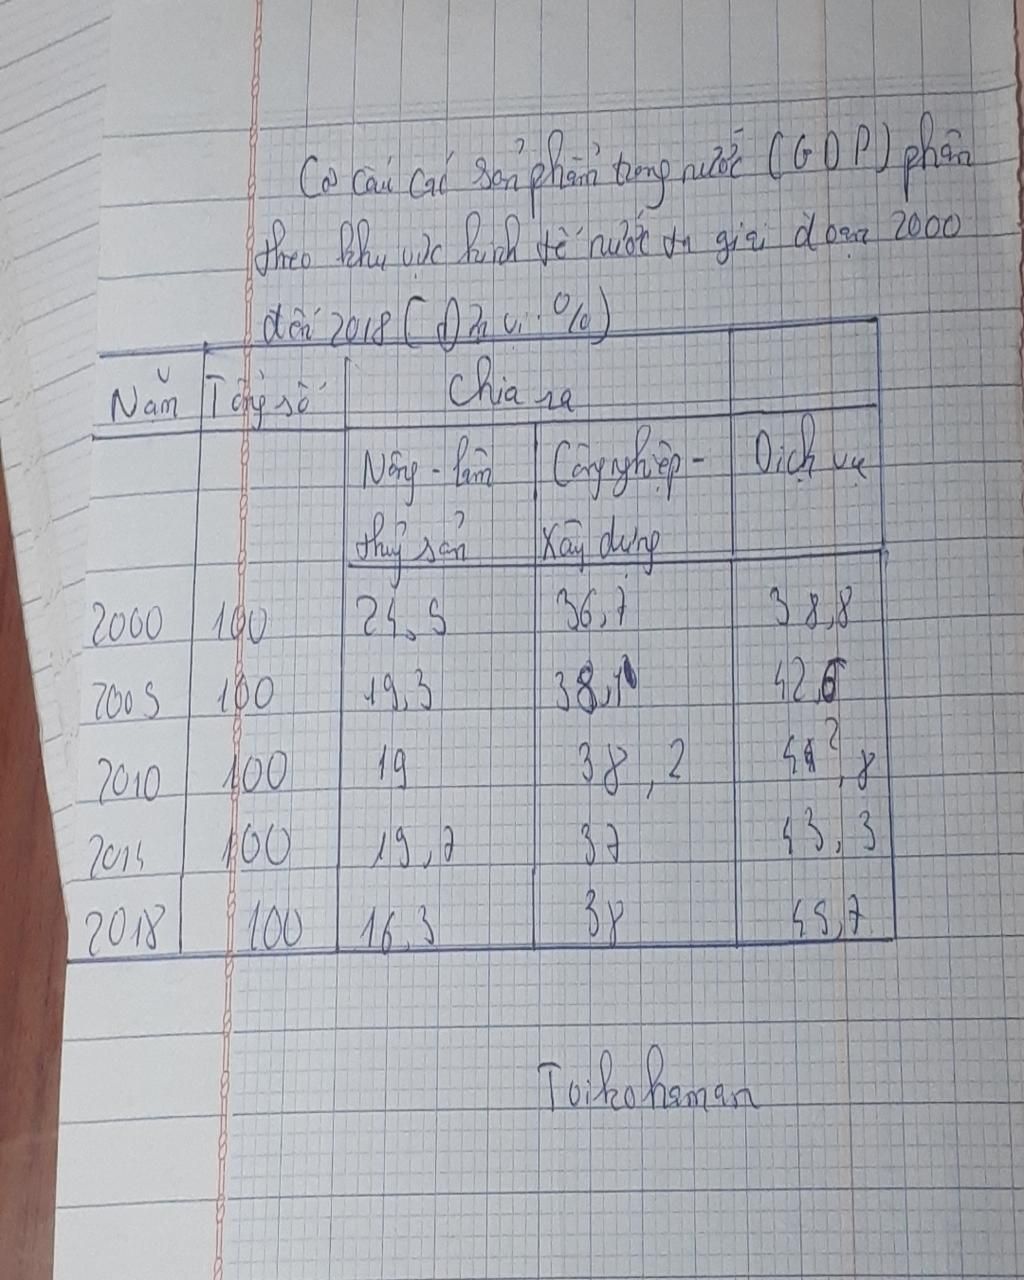 Cơ cấu các sản phẩm trong nước (GDP) phân
theo khu vực kinh tế nước ta giai đoạn 2000
đến 2018 (Đơn vị: %)
Năm Tổng số Chia ra
Nông - lâm Công nghiệp - Dịch vụ
thuỷ sản Xây dựng
2000 100 24,5 36,7 38,8
2005 100 19,3 38,1 42,6
2010 100 19 38,2 42,8
2014 100 19,7 37 43,3
2018 100 16,3 38 45,7
Toikohaman